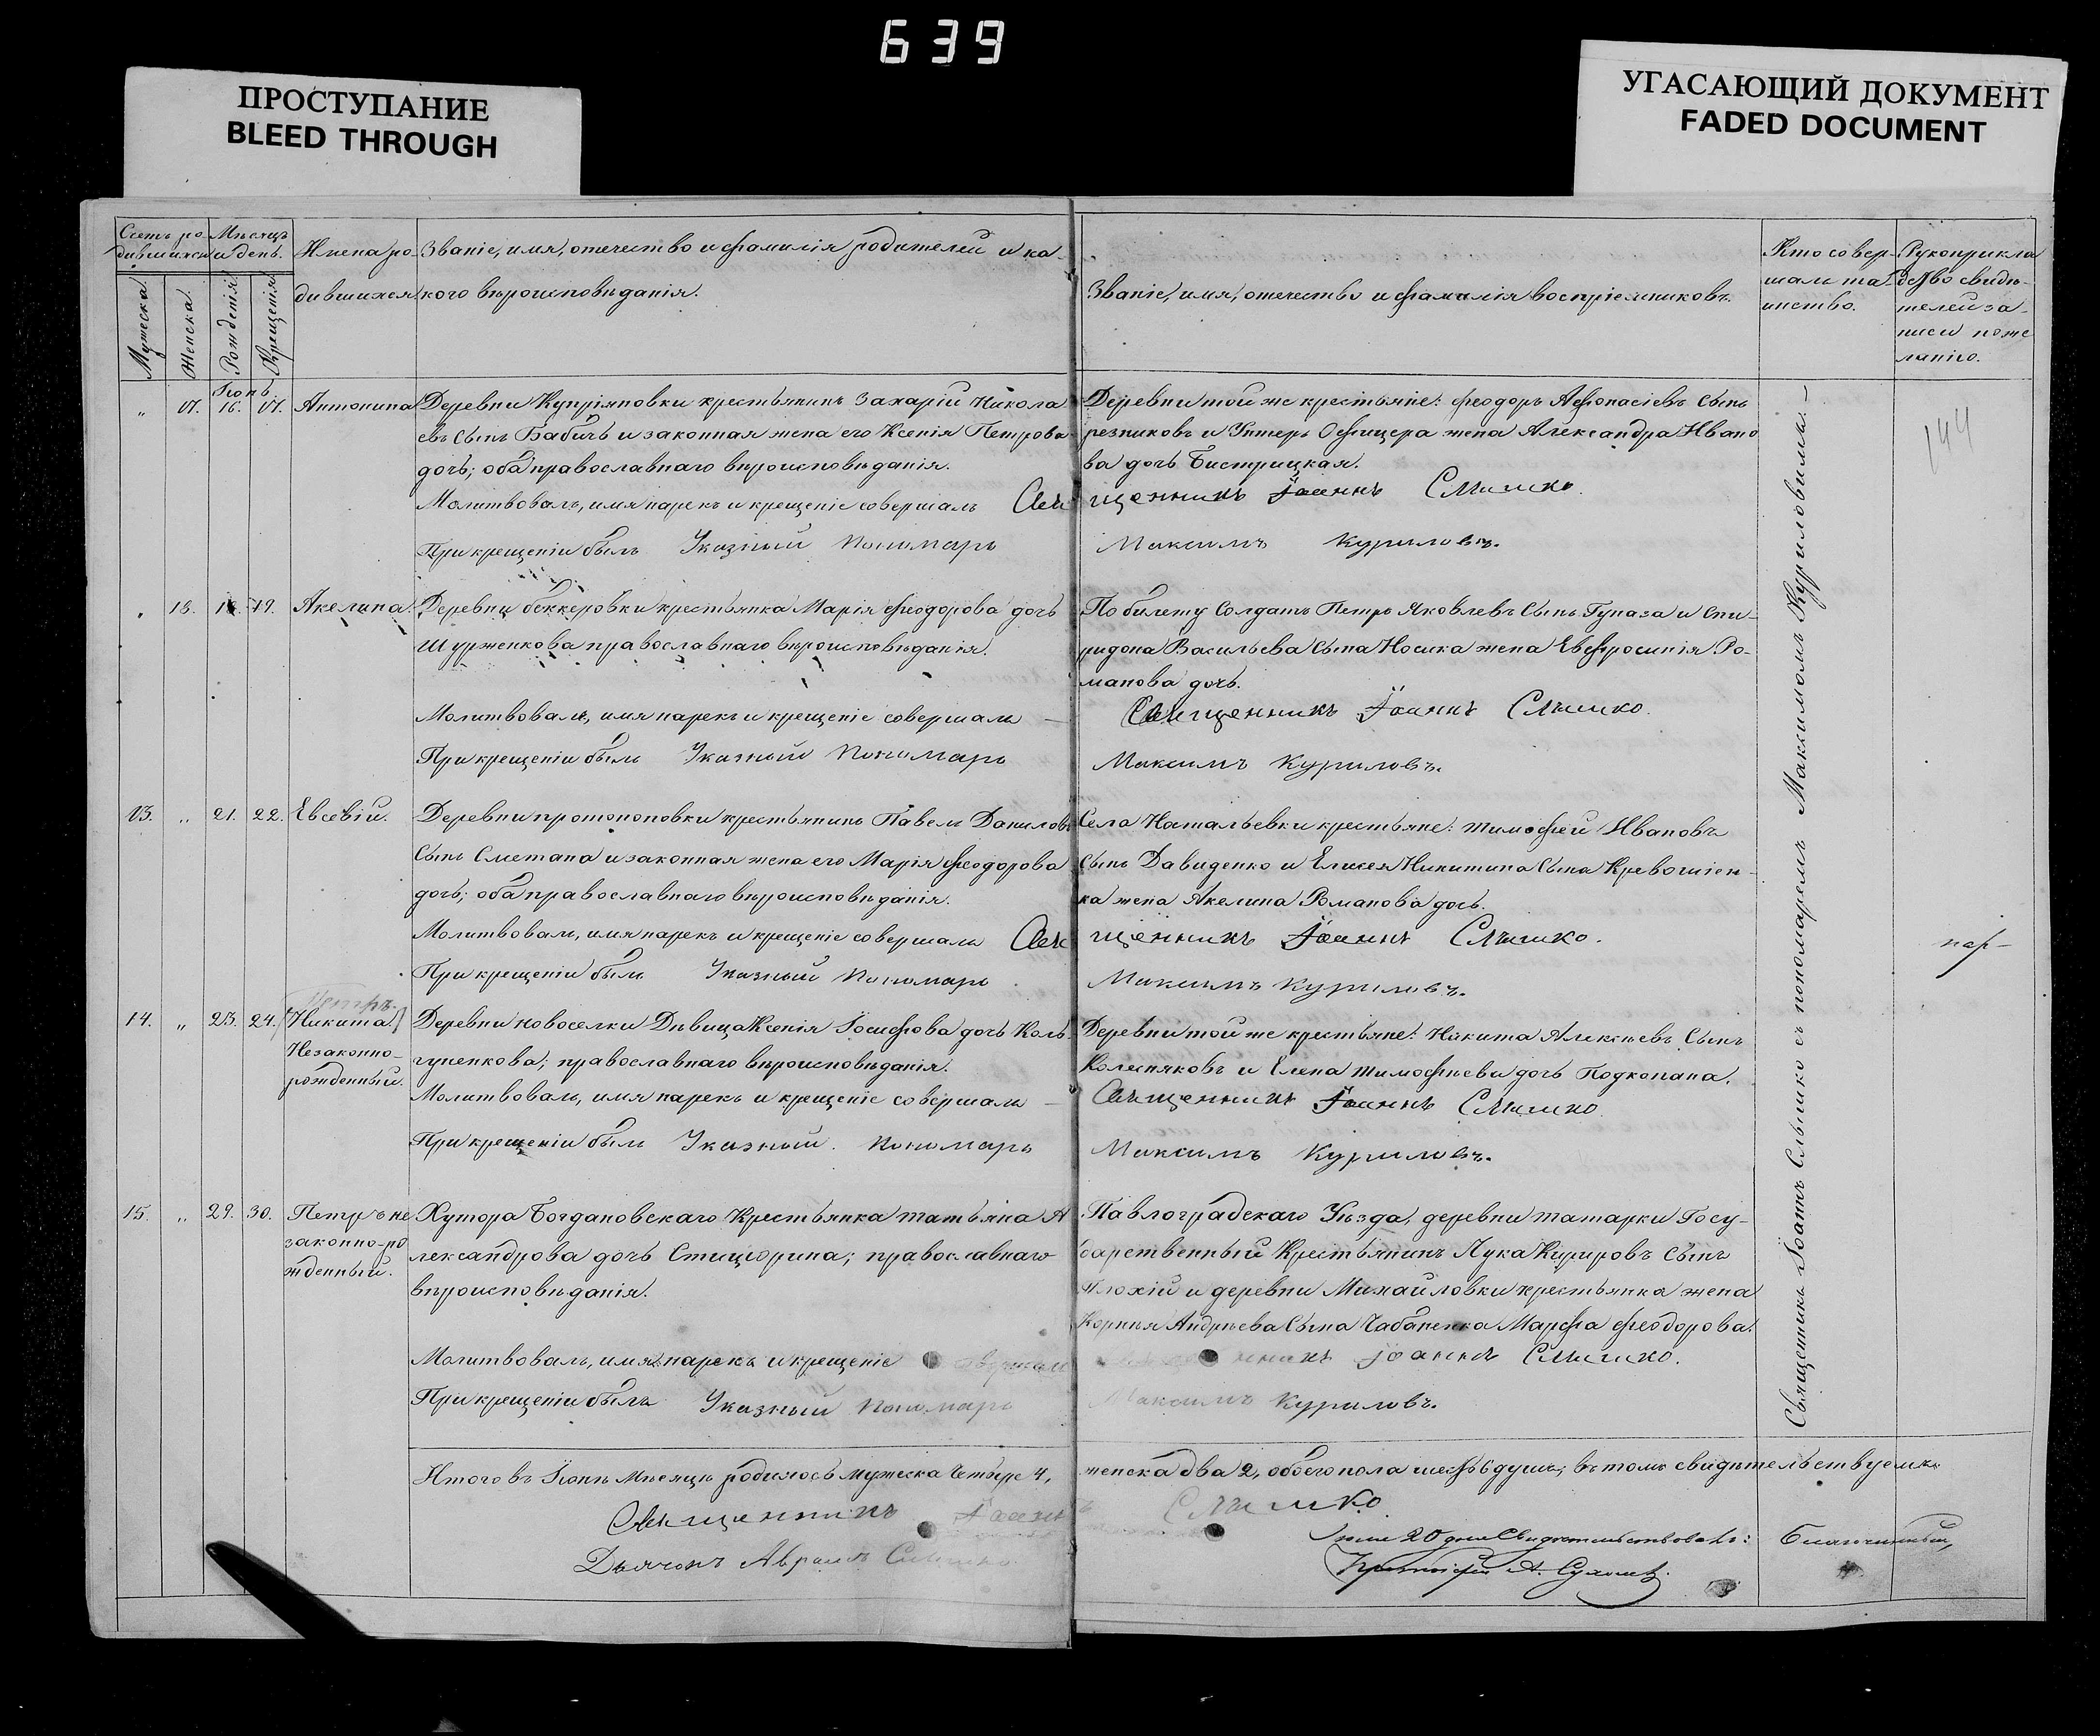 639
ПРОСТУПАНИЕ
BLEED THROUGH
УГАСАЮЩИЙ ДОКУМЕНТ
FADED DOCUMENT
Счетъ ро-
дившихся
Мѣсяцъ
и день.
Мужеска.
Женска.
Рожденія
Крещенія
Имена ро-
дившихся
Званіе, имя, отечество и фамилія родителей и ка-
кого вѣроисповѣданія.
Званіе, имя, отечество и фамилія воспріемниковъ.
Кто совер-
шалъ та-
инство.
Рукоприкла
дство свидѣ-
телей за-
писи по же
ланію.
Іюнь
„ 17. 16. 17. Антонина
Деревни Купріяновки крестьянинъ Захарій Никола
евъ Сынъ Бабичъ и законная жена его Ксенія Петрова
дочь; оба православнаго вѣроисповѣданія.
Молитвовалъ, имя нарекъ и крещеніе совершалъ Свя
При крещеніи былъ Указный Пономарь
Деревни той же крестьяне: Феодоръ Афонасіевъ Сынъ
резниковъ и Унтеръ Офицера жена Александра Ивано
ва дочь Бистрицкая.
щенникъ Іоаннъ Слышко.
Максимъ Куриловъ.
144
„ 18. 18. 19. Акелина.
Деревни беккеровки крестьянка Марія Феодорова дочь
Шурженкова православнаго вѣроисповѣданія.
Молитвовалъ, имя нарекъ и крещеніе совершалъ —
При крещеніи былъ Указный Пономарь
По билету Солдатъ Петръ Яковлевъ Сынъ Гупаза и Спи-
ридона Васильева Сына Носика жена Евфросинія Ро-
манова дочь.
Священникъ Іоаннъ Слышко.
Максимъ Куриловъ.
13. „ 21. 22. Евсевій.
Деревни протопоповки крестьянинъ Павелъ Даниловъ
Сынъ Сметана и законная жена его Марія Феодорова
дочь; оба православнаго вѣроисповѣданія.
Молитвовалъ, имя нарекъ и крещеніе совершалъ Свя
При крещеніи былъ Указный Пономарь
Села Натальевки крестьяне: тимофей Ивановъ
Сынъ Давиденко и Елисея Никитина Сына
ка жена Акелина Романова дочь.
щенникъ Іоаннъ Слышко.
Максимъ Куриловъ.
Петръ.
14. „ 23. 24. Никита
Незаконно-
рожденный.
Деревни новоселки Дѣвица Ксенія Іосифова дочь Коль-
гуненкова; православнаго вѣроисповѣданія.
Молитвовалъ, имя нарекъ и крещеніе совершалъ —
При крещеніи былъ Указный Пономарь
Деревни той же крестьяне: Никита Алексѣевъ Сынъ
Колисняковъ и Елена тимофѣева дочь Подкопана.
Священникъ Іоаннъ Слышко
Максимъ Куриловъ.
15. „ 29. 30. Петръ не
законно-ро
жденный.
Хутора Богдановскаго Крестьянка татьяна А
лександрова дочь Стицюрина; православнаго
вѣроисповѣданія.
Молитвовалъ, имя нарекъ и крещеніе совершалъ
При крещеніи былъ Указный Пономарь
Павлоградскаго Уѣзда, деревни татарки Госу-
дарственный Крестьянинъ Лука Кириловъ Сынъ
Плохій и деревни Михайловки крестьянка жена
Корнія Андрѣева Сына Чабаненка Марфа Феодорова.
щенникъ Іоаннъ Слышко.
Максимъ Куриловъ.
Священникъ Іоаннъ Слышко съ пономаремъ Максимомъ Куриловымъ.
Итого въ Іюнѣ Мѣсяцѣ родилось мужеска Четыре 4,
женска два 2, обоего пола шесть 6 душъ; въ томъ свидѣтельствуемъ
Священникъ Іоаннъ Слышко
Дьячокъ Авраамъ
Іюля 20 дня Свидѣтельствовалъ: Благочинный,